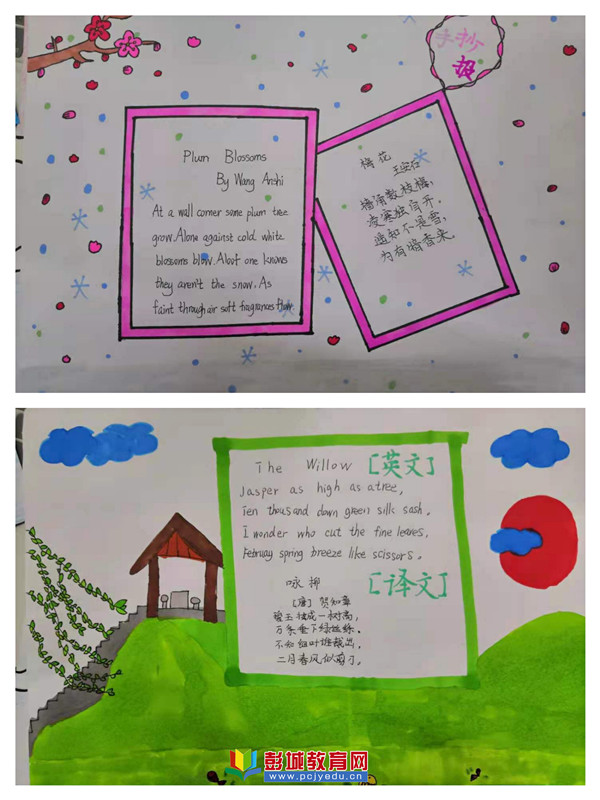 手抄
报
Plum Blossoms
By Wang Anshi
At a wall corner some plum tree
grow.Alone against cold white
blossoms blow.Aloof one knows
they aren't the snow.As
faint through air soft fragrances flow.
梅花
王安石
墙角数枝梅,
凌寒独自开。
遥知不是雪,
为有暗香来。
The Willow [英文]
Jasper as high as a tree,
Ten thousand down green silk sash,
I wonder who cut the fine leaves,
February spring breeze like scissors.
[译文]
咏柳
[唐]贺知章
碧玉妆成一树高,
万条垂下绿丝绦。
不知细叶谁裁出,
二月春风似剪刀。
彭城教育网
www.pcjyedu.cn